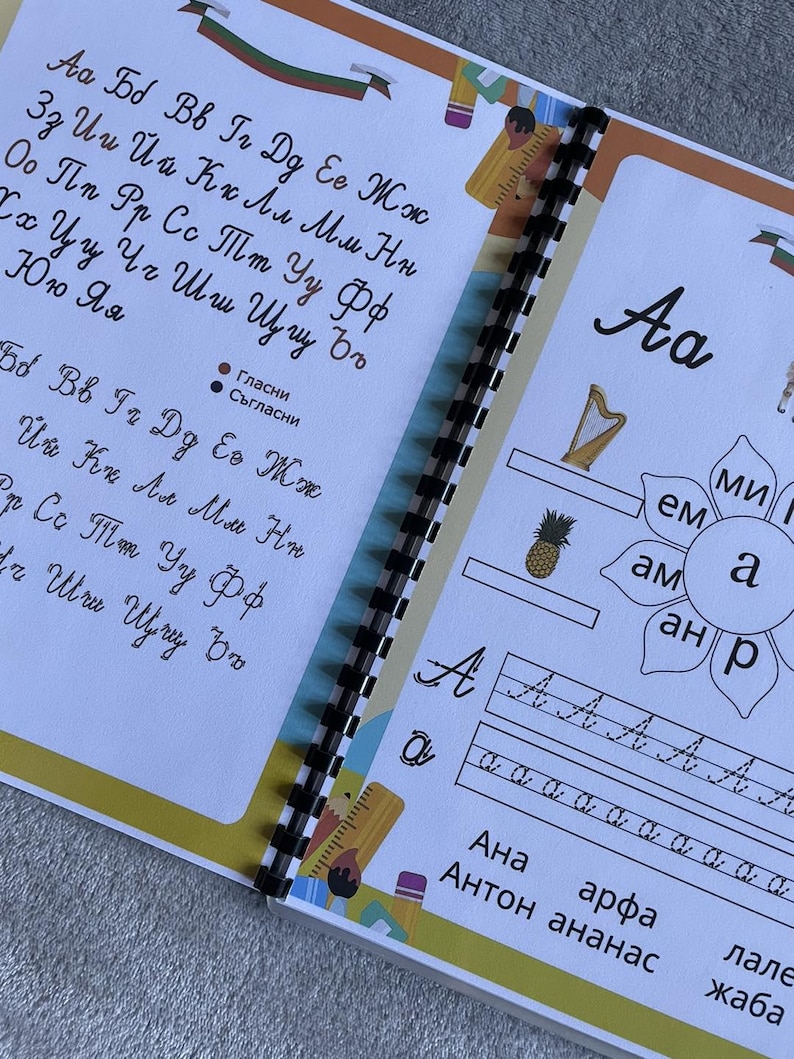 Аа Бб Вв Гг Дд Ее Жж
Зз Ии Йй Кк Лл Мм Нн
Оо Пп Рр Сс Тт Уу Фф
Хх Цц Чч Шш Щщ Ъъ
Юю Яя
Гласни
Съгласни
Бб Вв Гг Дд Ее Жж
Йй Кк Лл Мм Нн
Рр Сс Тт Уу Фф
Чч Шш Щщ Ъъ
Аа
ми
ем
ам
а
ан
р
А А А А А А А
а а а а а а а а а а
Ана арфа
Антон ананас
жаба